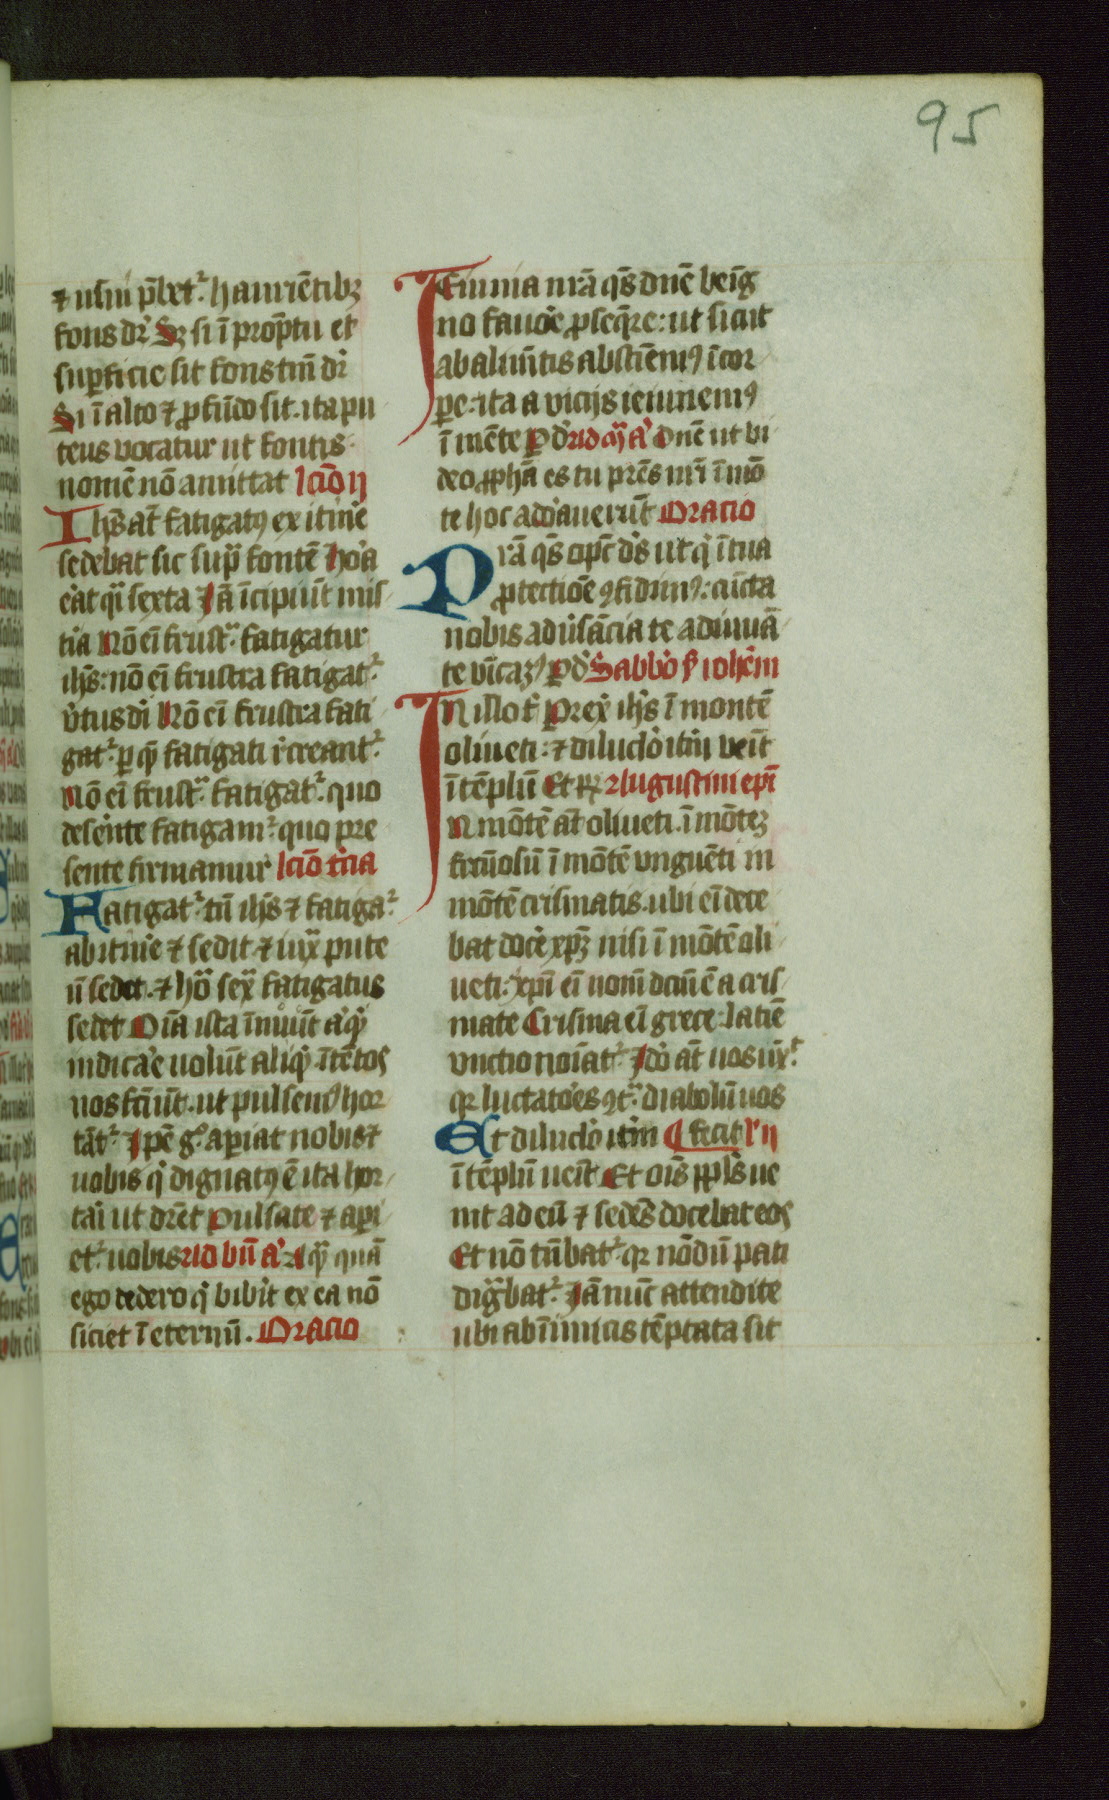 95
⁊ usui p̄bet᷑. hauriētibꝫ
fons dr̄ Sꝫ si ī prop̄tu et
suꝑficie sit fons tm̄ dr̄
Si ī alto ⁊ ꝓfūdo sit. ita pu
teus vocatur ut fontis
nomē nō amittat lc̄io ij
Ihs̄ at̄ fatigatꝰ ex itine᷑
sedebat sic sup̄ fontē hoꝛa
erat q̄i sexta Iā īcipiūt mis
tia Nō ei̅ frust᷑ fatigatur
ihs̄: nō ei̅ frustra fatigat᷑
v̓tus di̅ Nō ei̅ frustra fati
gat᷑ ꝑ qm̄ fatigati rec̓reant᷑
Nō ei̅ frust᷑ fatigat᷑. quo
desēnte fatigam᷑ quo pre
sente firmamur lc̄io tr̄ia
Fatigat᷑ tn̄ ihs̄ ⁊ fatigat᷑
ab itine᷑ ⁊ sedit ⁊ iux̄ pute
ū sedet. ⁊ hoꝛ sex̄ fatigatus
sedet Oīa ista īnuūt aꝗ̄
indicare uolūt aliꝗ̄ ītētos
nos faciūt. ut pulsemꝰ hoꝛ
tāt᷑ Ipē gͦ aꝑiat nobis ⁊
uobis ꝗ dignatꝰ ē ita hoꝛ
tari ut dr̄et Pulsate ⁊ aꝑi
et᷑ uobis Ad bn̄ a᷑ Aq̄ quā
ego dedero ꝗ bibit ex ea nō
siciet ī eternū. Oracio
Ieiunia nr̄a qs̄ dn̄e beig̅
no fauoꝛe ꝓseq̄re: ut sicut
ab alimn̄tis abstiēmꝰ ī coꝛ
pe: ita a vicijs ieiunemꝰ
ī mēte P d᷑ Ad m̄ a᷑ Dn̄e ut vi
deo ꝓphā es tu pr̄es nr̄i ī mō
te hoc adoꝛauerūt Oracio
Pr̄a qs̄ op̄c ds̄ ut ꝗ ī tua
ꝓtectiōe ꝯfidimꝰ: cūcta
nobis adūsācia te adiuuā
te vīcamꝰ P d᷑ Sabbo᷑ s᷑ ioh̄em
In illo t̄ Prex̄ ihs̄ ī montē
oliueti: ⁊ diluclo᷑ itm̄ veīt
ī tēplū Et rͣ Augustini ep̄i
In mōtē at̄ oliueti. ī mōteꝫ
fctūosū ī mōtē vnguēti in
mōtē crismatis. ubi ei̅ dece
bat docē xp̄ꝫ nisi ī mōtē oli
ueti: Xp̄i ei̅ nom̄ dcūm ē a cris
mate Crisma ei̅ grece: latiē
vnctio noiat᷑ Ido᷑ at̄ nos vx̄᷑
qꝛ luctatoꝛes ꝯt᷑ diabolū nos
Et diluclo᷑ itm̄ ¶ fecit lc̄ ij
ī tēplū ueīt Et ois̄ pp̄ls ue
nit ad eū ⁊ sedēs docebat eos
Et nō tn̄bat᷑. qꝛ nōdū pati
dig̅bat᷑. Iā nunc attendite
ubi ab īimicis tēptata sit